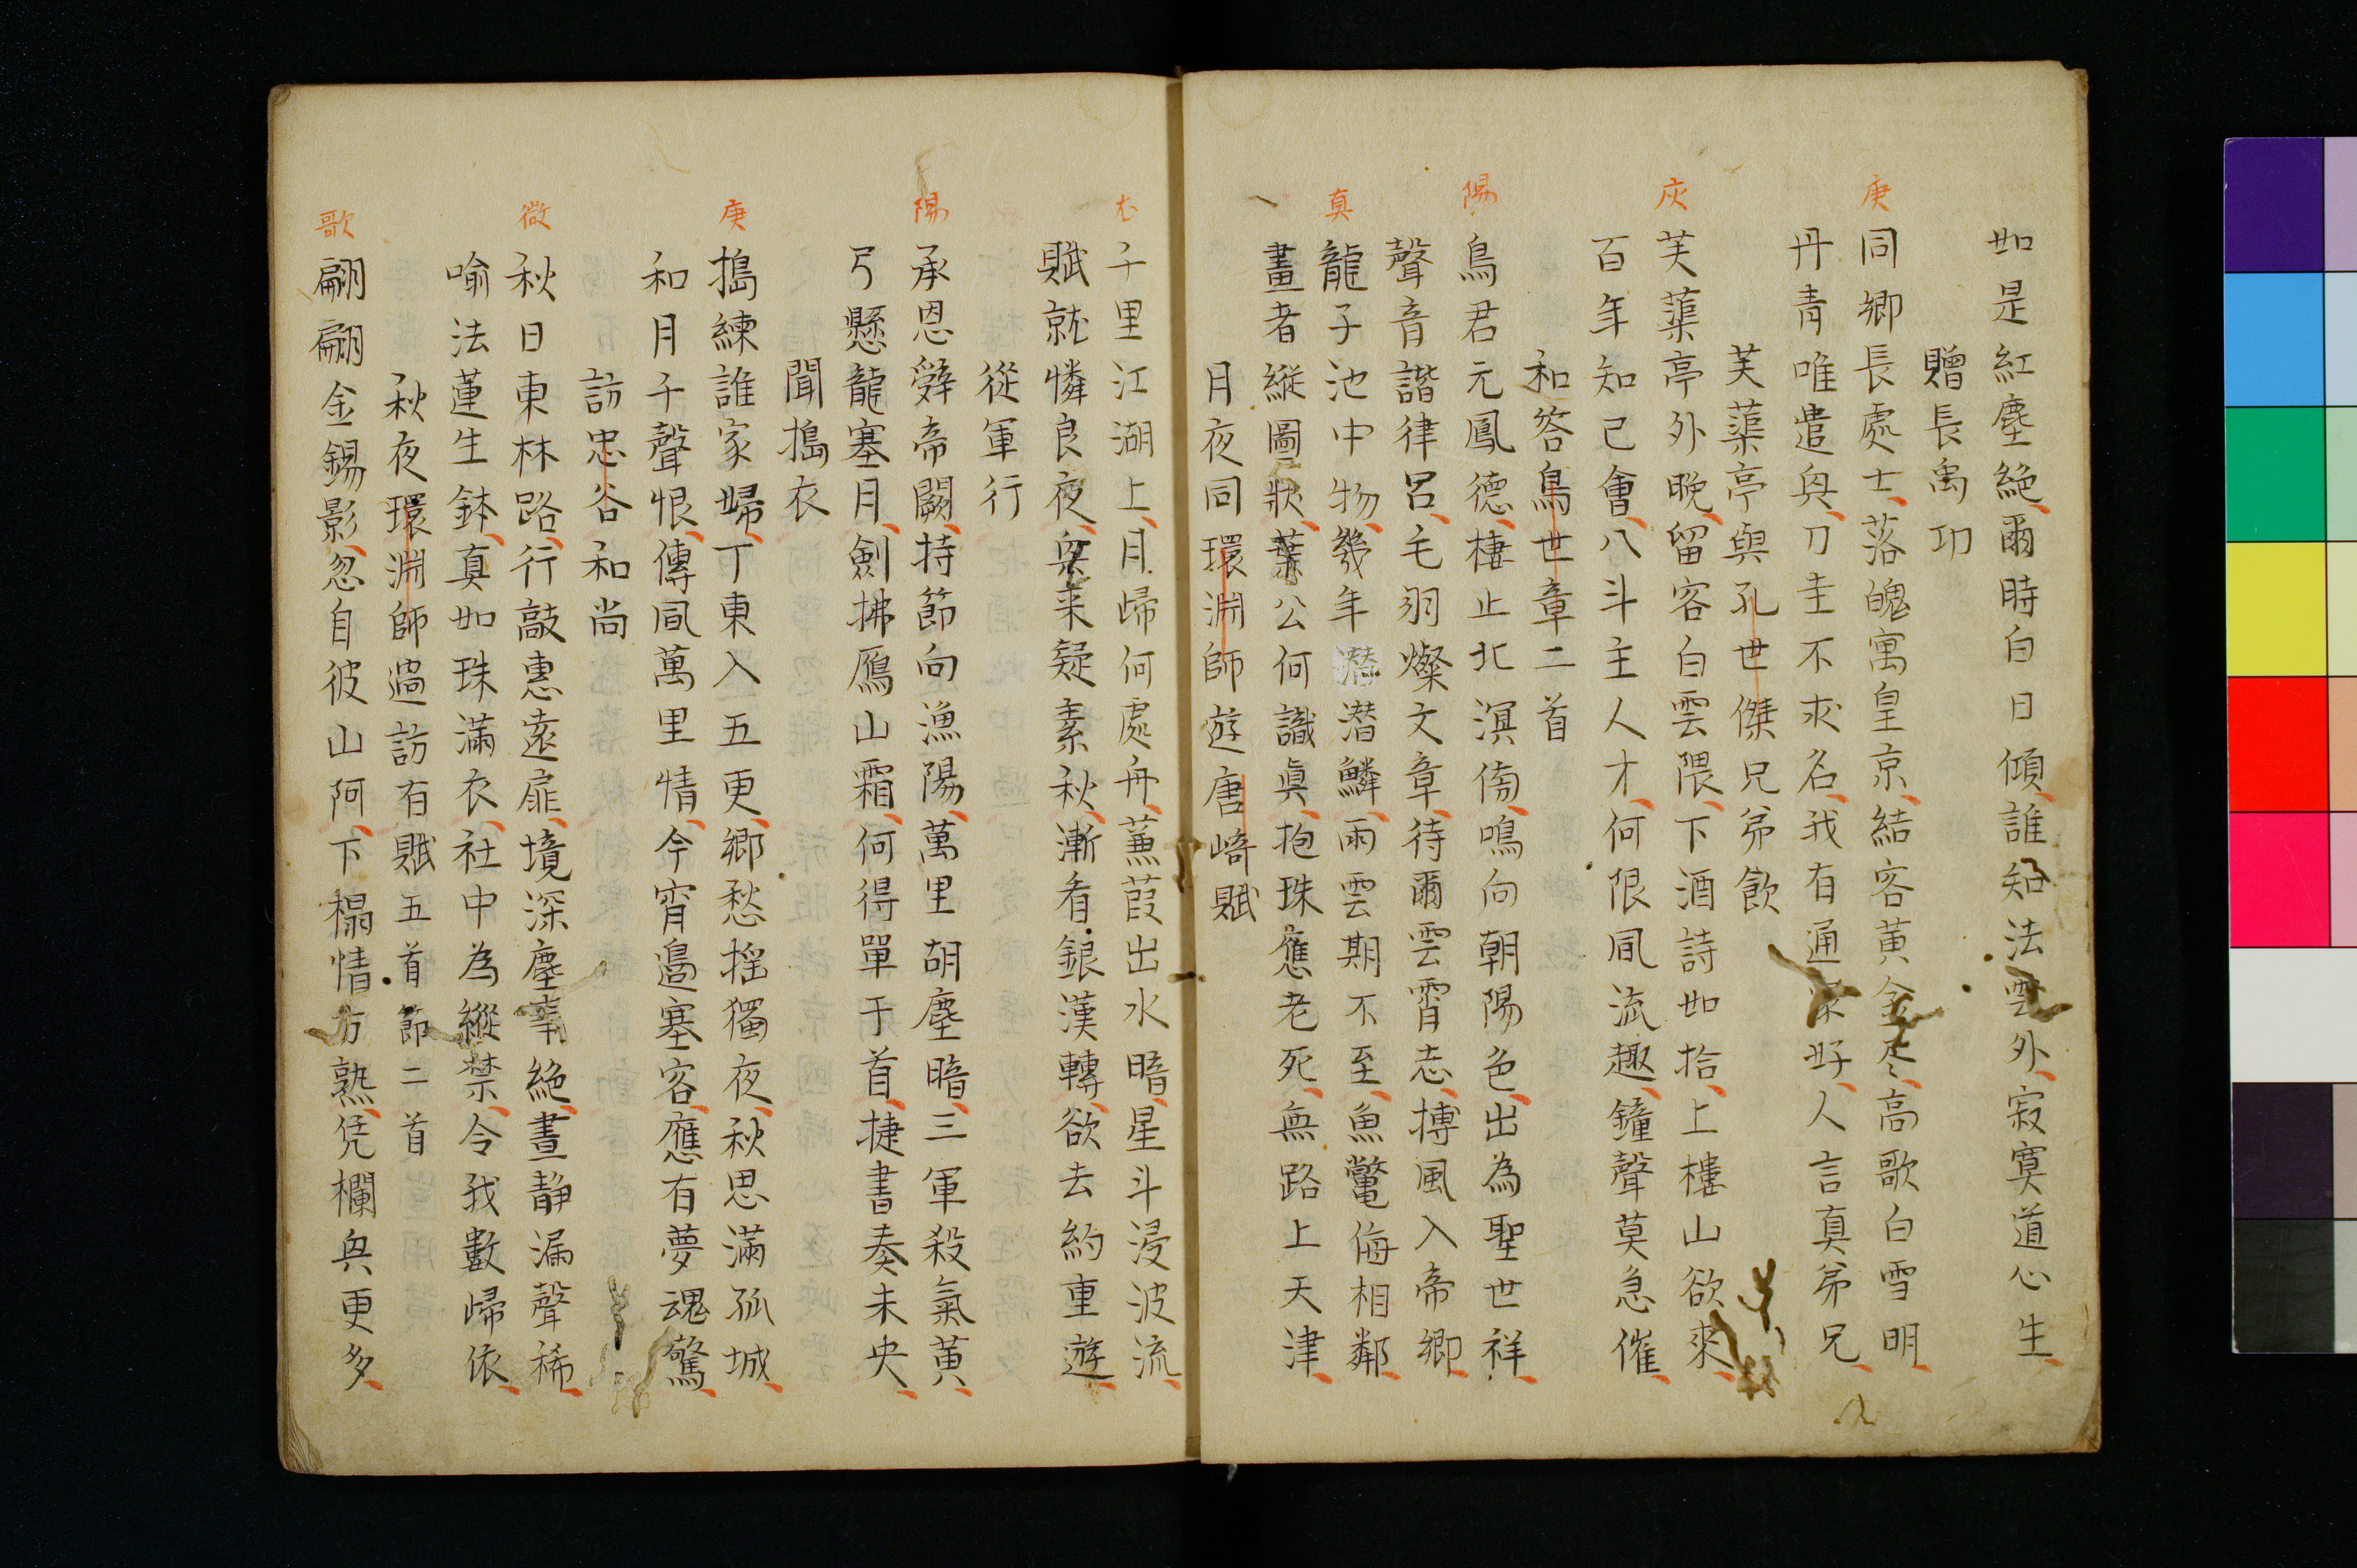 如是紅塵絶爾時白日傾誰知法雲外寂寞道心生
贈長禹功
庚
同郷長處士落魄寓皇京結客黃金尽高歌白雪明
丹青唯遣興刀圭不求名我有通家好人言真弟兄
芙蕖亭與孔世傑兄弟飲
灰
芙蕖亭外晚留客白雲隈下酒詩如拾上樓山欲來
百年知己會八斗主人才何限風流趣鐘聲莫急催
和答鳥世章二首
陽
鳥君元鳳德棲止北溟傍鳴向朝陽色出為聖世祥
聲音諧律呂毛羽燦文章待爾雲霄志摶風入帝郷
真
龍子池中物幾年潜鱗雨雲期不至魚鼈侮相鄰
畫者縱圖狀葉公何識眞抱珠應老死無路上天津
月夜同環淵師遊唐崎賦
尤
千里江湖上月歸何處舟蒹葭出水暗星斗浸波流
賦就憐良夜興来疑素秋漸看銀漢轉欲去約重遊
從軍行
陽
承恩辤帝闕持節向漁陽萬里胡塵暗三軍殺氣黃
弓懸龍塞月劍拂鴈山霜何得單于首捷書奏未央
聞搗衣
庚
搗練誰家婦丁東入五更郷愁揺獨夜秋思滿孤城
和月千聲恨傳風萬里情今宵邊塞客應有夢魂驚
訪忠谷和尚
微
秋日東林路行敲惠遠扉境深塵事絶晝静漏聲稀
喻法蓮生鉢真如珠滿衣社中為縱禁令我數歸依
秋夜環淵師過訪有賦五首節二首
歌
翩翩金錫影忽自彼山阿下榻情方熟凭欄興更多